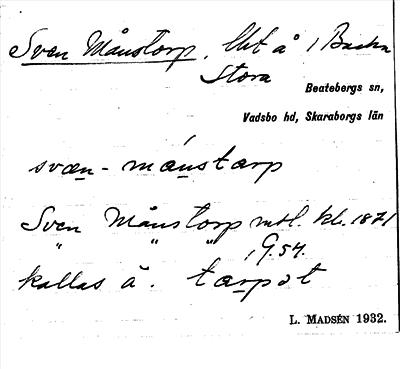 Sven Månstorp, lht å / Backa
Stora
Beatebergs sn,
Vadsbo hd, Skaraborgs län
svæn - mánstarp
Sven Månstorp mtl. kb. 1871
" " " , G.54.
kallas å. tarpət
L. MADSÉN 1932.